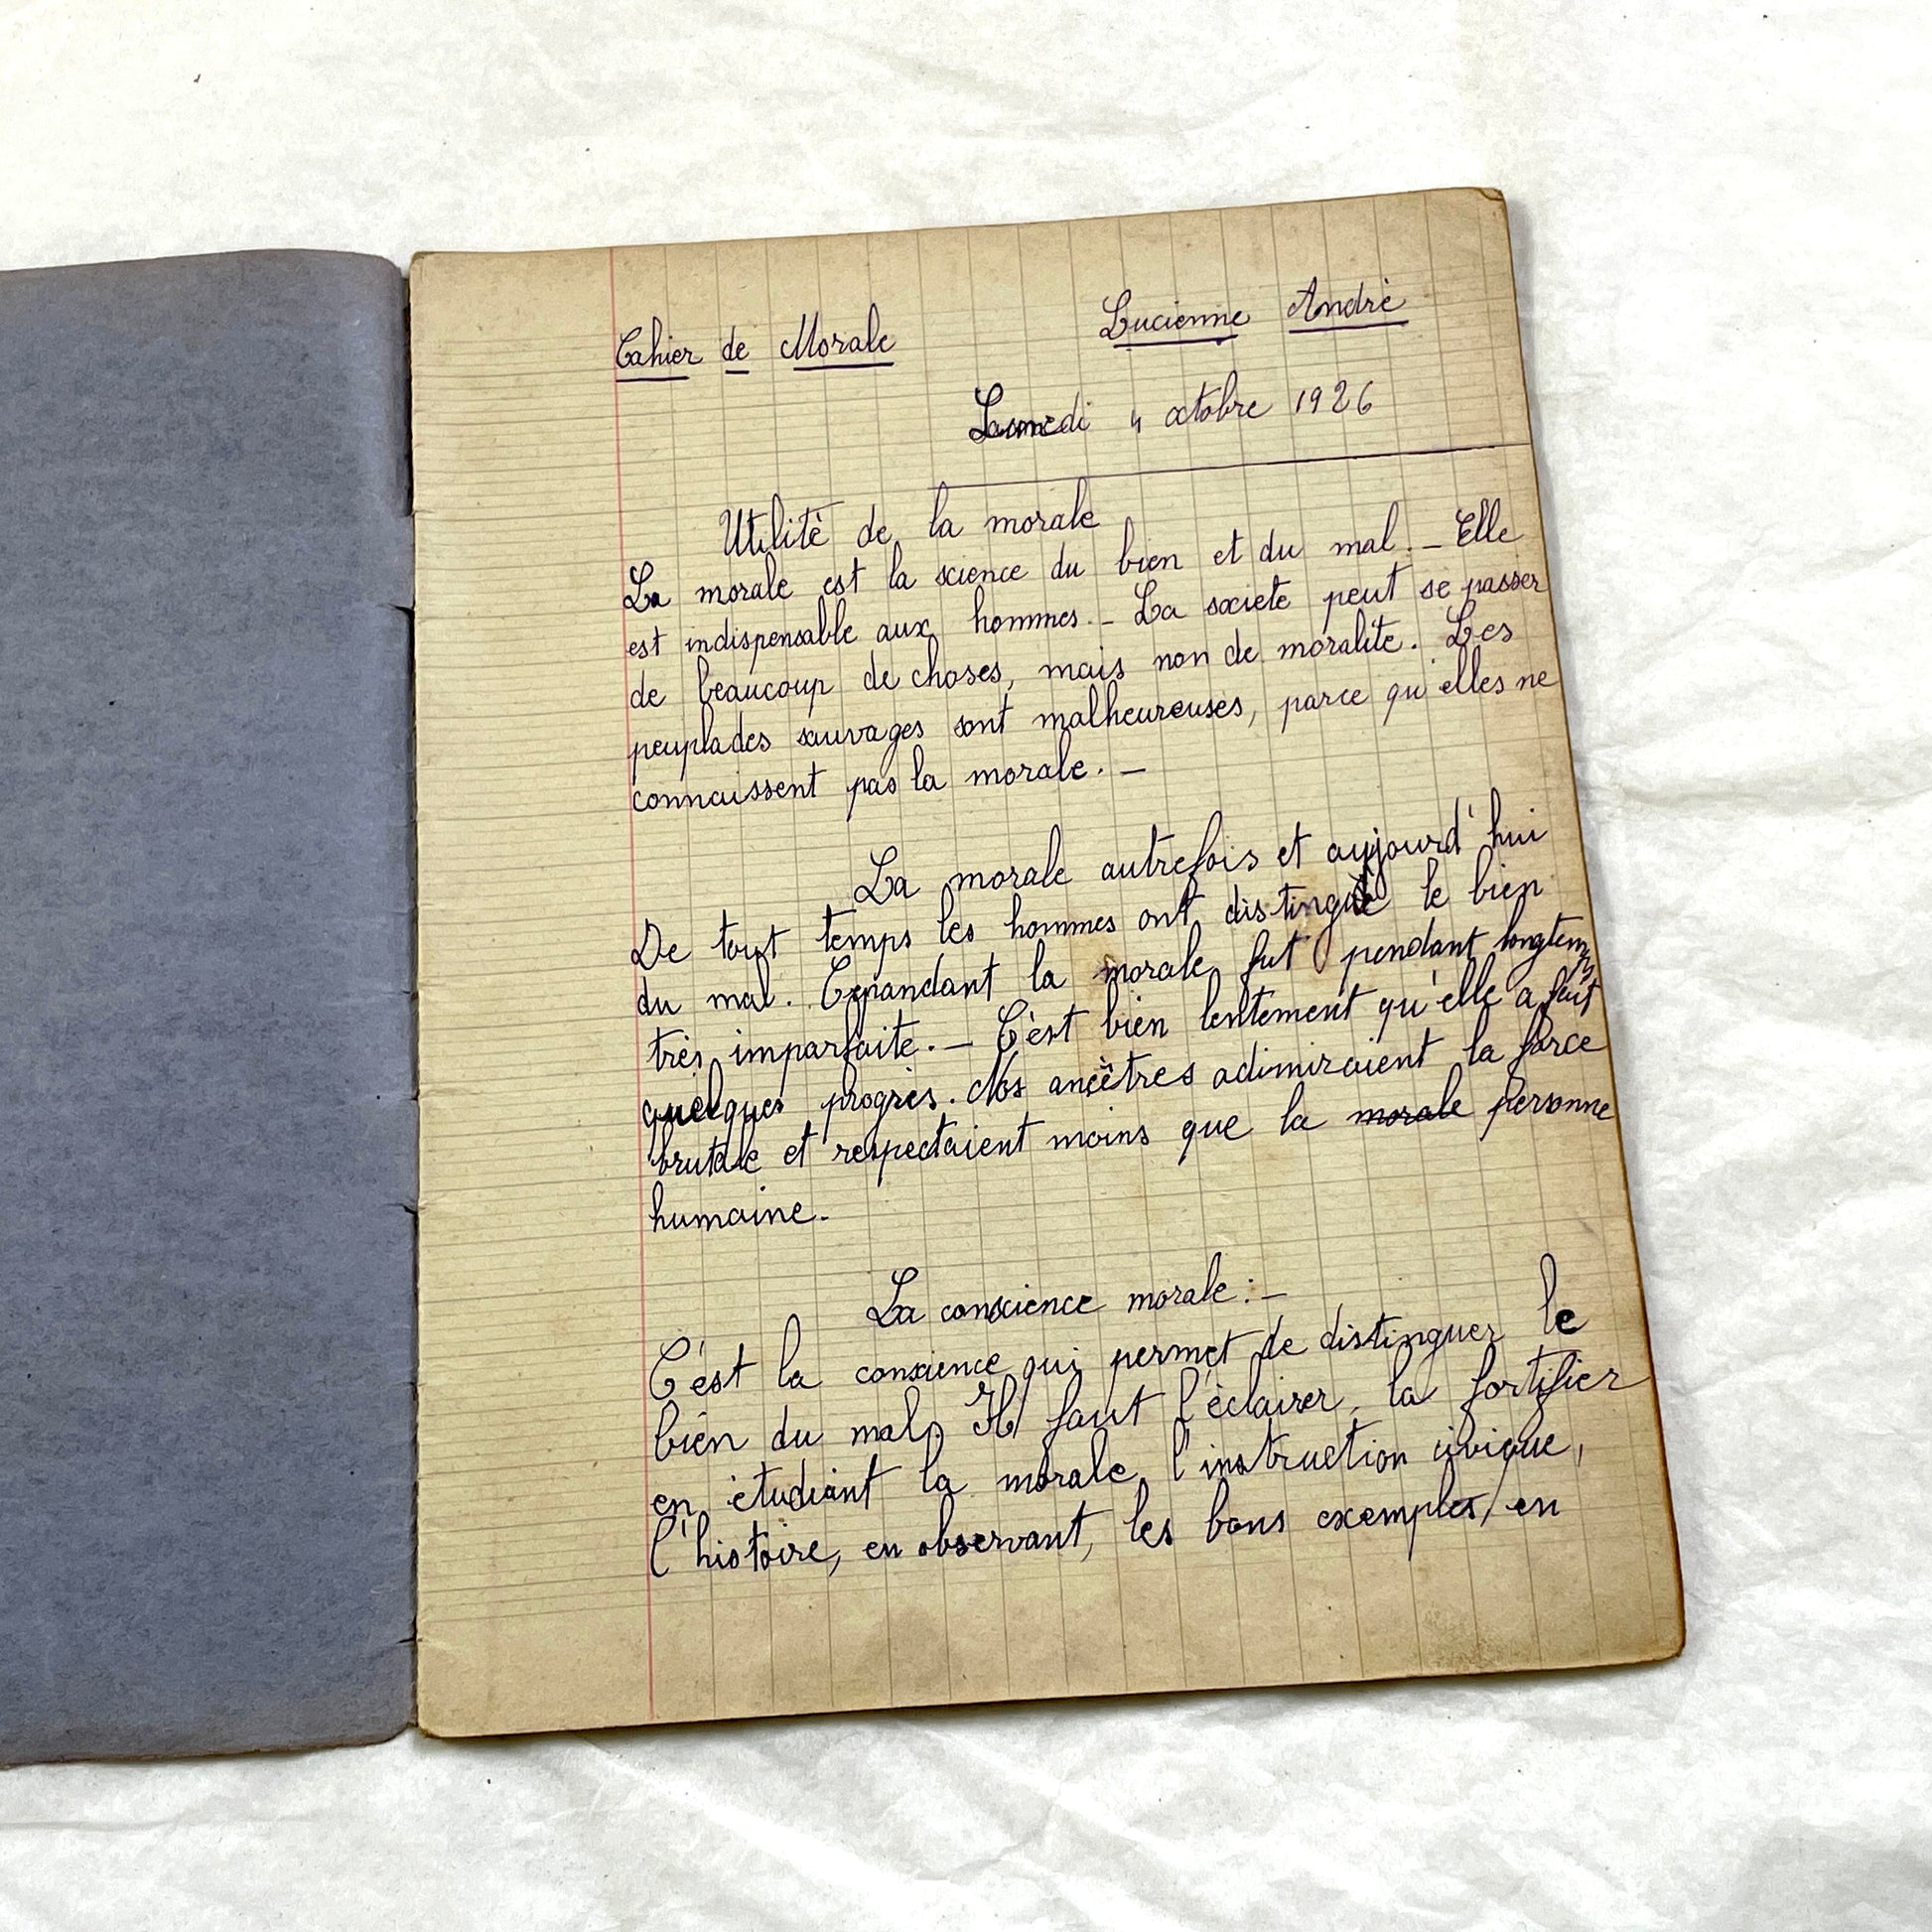 Cahier de Morale
Lucienne Andrè
4 octobre 1926
Utilitè de la morale
La morale est la science du bien et du mal. _ Elle
est indispensable aux hommes. _ La societe peut se passer
de beaucoup de choses, mais non de moralite. Les
peuplades sauvages sont malheureuses, parce qu'elles ne
connaissent pas la morale. _
La morale autrefois et aujourd'hui
De tout temps les hommes ont distinguè le bien
du mal. Cependant la morale fut pendant longtemps
très imparfaite. _ C'est bien lentement qu'elle a fait
quelques progrès. Nos ancêtres adimiraient la force
brutale et respectaient moins que la morale personne
humaine.
La conscience morale : _
C'est la conscience qui permet de distinguer le
bien du mal. Il faut l'èclairer, la fortifier
en ètudiant la morale, l'instruction civique,
l'histoire, en observant, les bons exemples, en